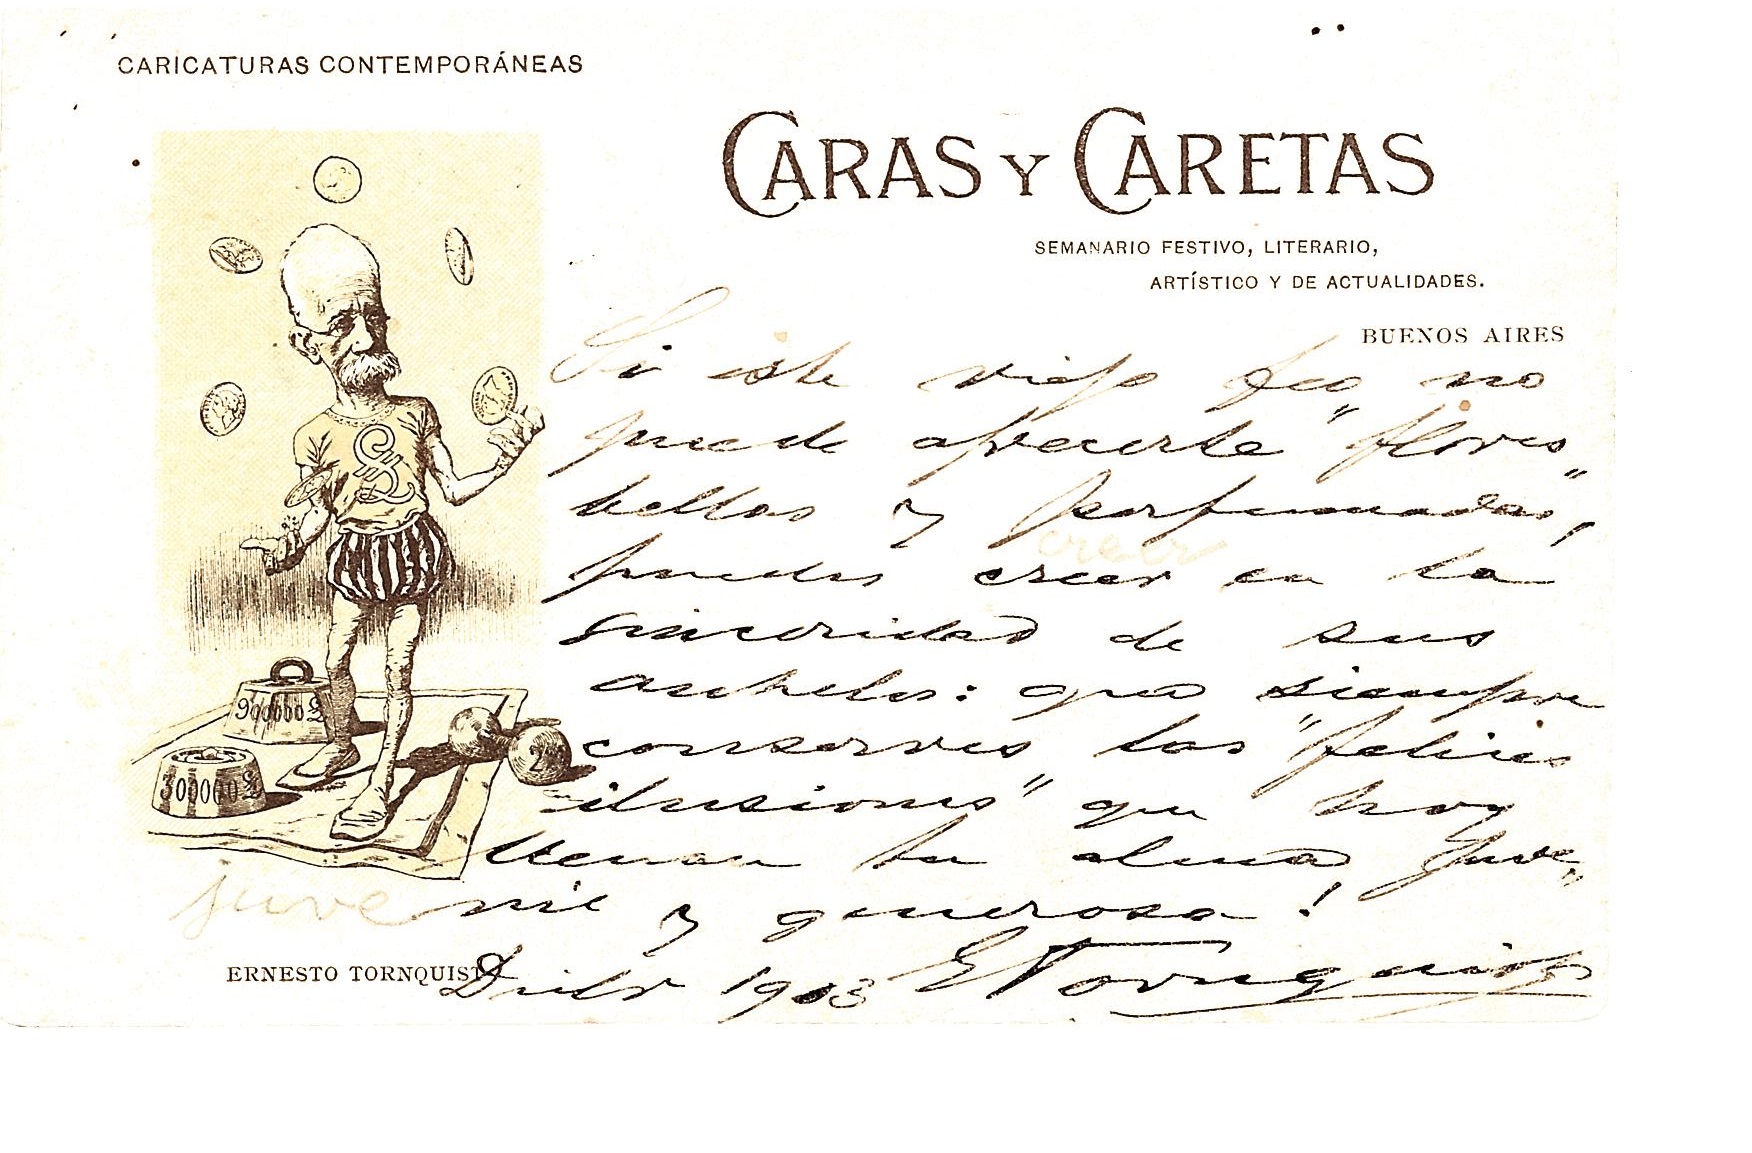 CARICATURAS CONTEMPORÁNEAS
CARAS Y CARETAS
SEMANARIO FESTIVO, LITERARIO,
ARTÍSTICO Y DE ACTUALIDADES.
BUENOS AIRES
900000 £
300000 £
2
Si este viejo feo no
puede ofrecerte "flores"
bellas y perfumadas,
creer
puedes creer en la
sinceridad de sus
anhelos: que siempre
conserves las "felices
ilusiones" que hoy
llenan tu alma juve
juve nil y generosa!
1903 E Tornquist
ERNESTO TORNQUIST